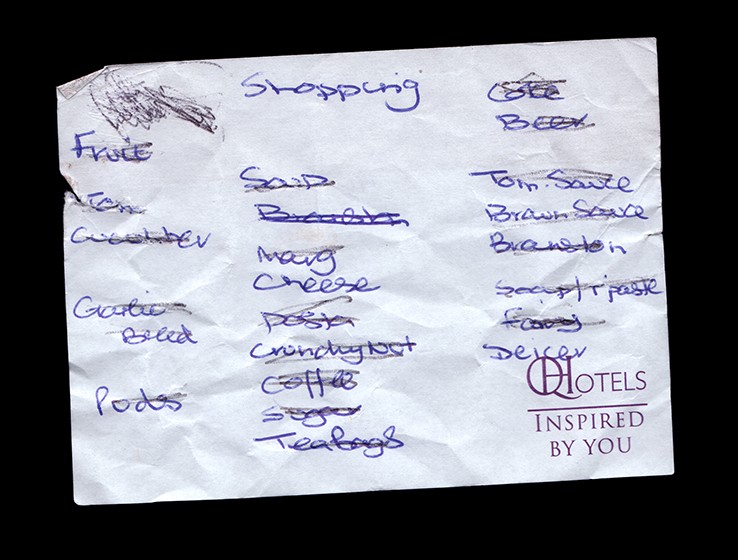 Shopping
Fruit
Tom
Cucumber
Garlic
Bread
Pudos
Soup
Branston
Marg
Cheese
Pasta
Crunchy Nut
Coffee
Sugar
Teabags
Coke
Beer
Tom. Sauce
Brown Sauce
Branston
Soap/T paste
Fairy
Deicer
QHOTELS
INSPIRED
BY YOU